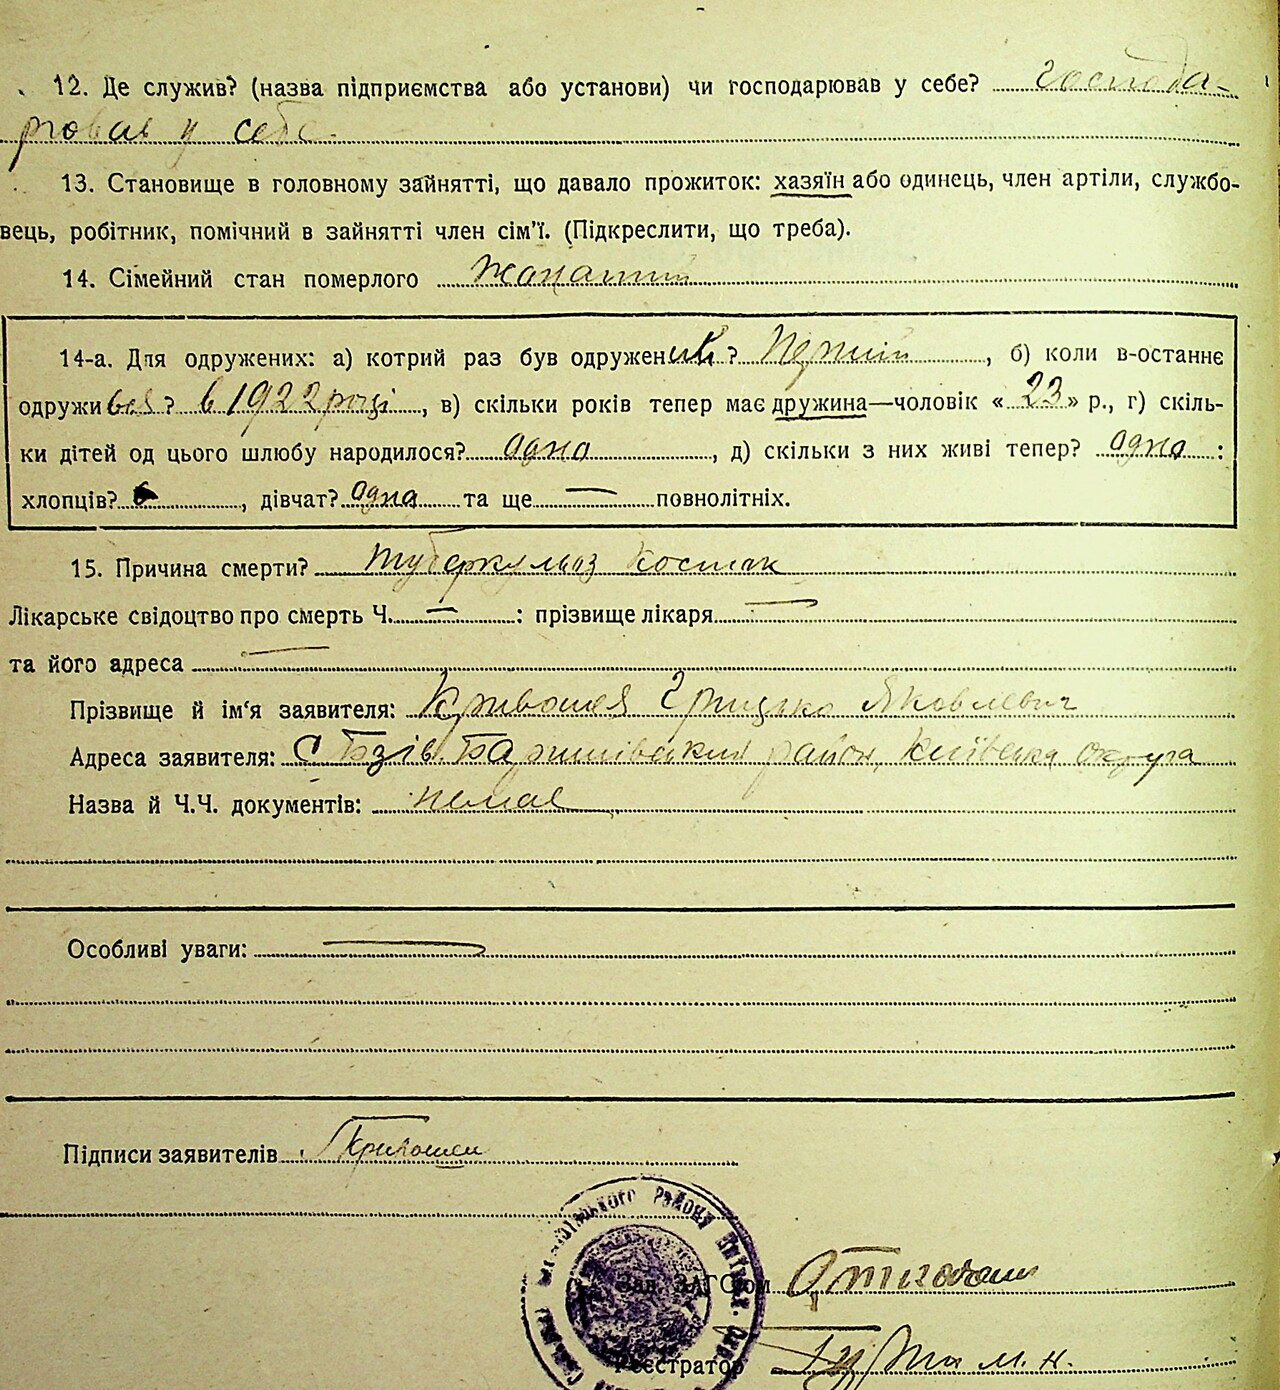 12. Де служив? (назва підприємства або установи) чи господарював у себе? господа-
рював у себе.
13. Становище в головному зайнятті, що давало прожиток: хазяїн або одинець, член артіли, службо-
вець, робітник, помічний в зайнятті член сім'ї. (Підкреслити, що треба).
14. Сімейний стан померлого жонатий
14-а. Для одружених: а) котрий раз був одружений? Перший, б) коли в-останнє
одруживсь? в 1922 році, в) скільки років тепер має дружина—чоловік « 23 » р., г) скіль-
ки дітей од цього шлюбу народилося? одна, д) скільки з них живі тепер? одна :
хлопців?, дівчат? одна та ще — повнолітніх.
15. Причина смерти? туберкульоз косток
Лікарське свідоцтво про смерть Ч. — : прізвище лікаря —
та його адреса —
Прізвище й ім'я заявителя: Кривошея Грицько Яковлевич
Адреса заявителя: С Бзів Баришівський район, Київська округа
Назва й Ч.Ч. документів: немає
Особливі уваги: —
Підписи заявителів Кривошеи
Району
Зав. ЗАГС'ом
Реєстратор М. Н.